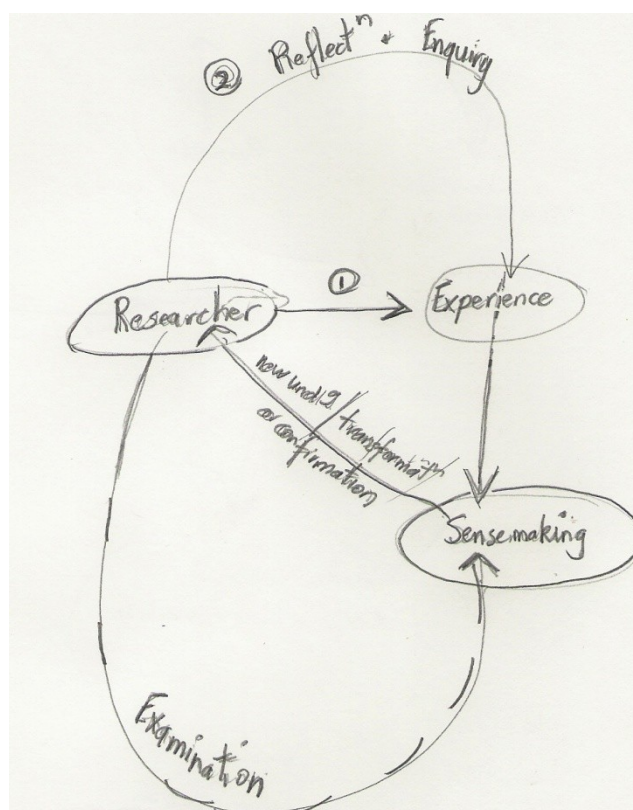 ② Reflectⁿ + Enquiry
①
Researcher
Experience
new undg / transformatⁿ /
or confirmation
Sensemaking
Examination